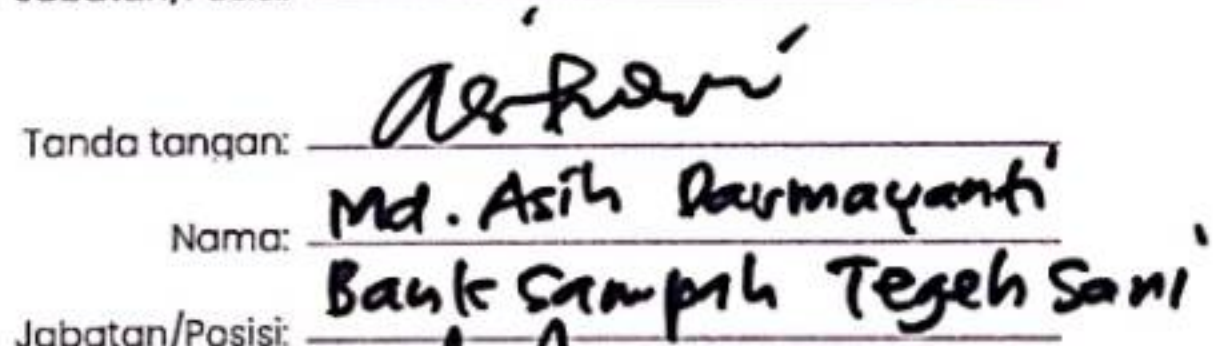 Tanda tangan:
Nama: Md. Asih Darmayanti
Jabatan/Posisi: Bank Sampah Tegeh Sari